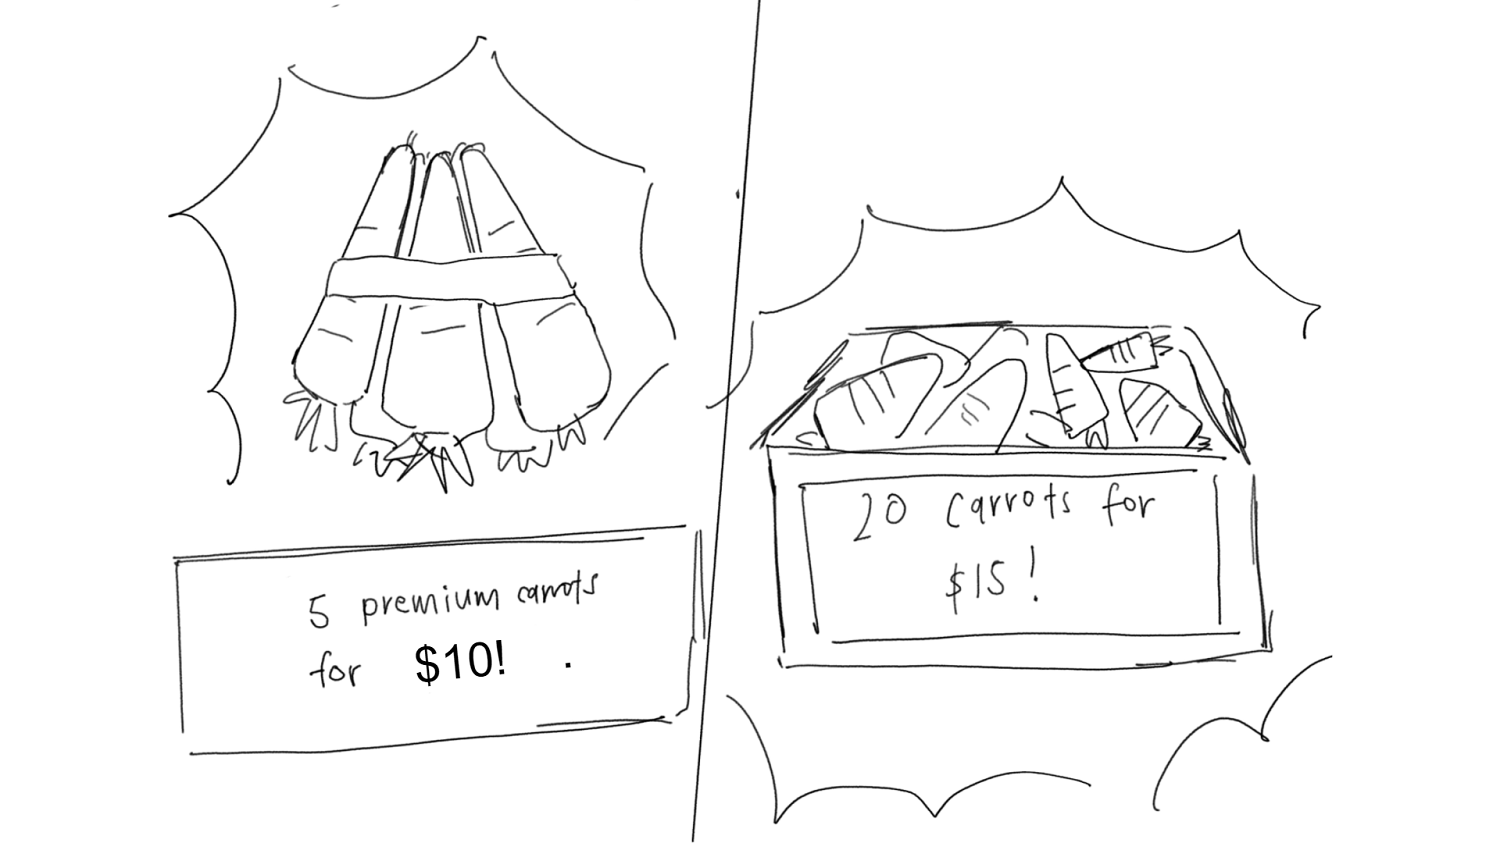 5 premium carrots
for $10! .
20 carrots for
$15!